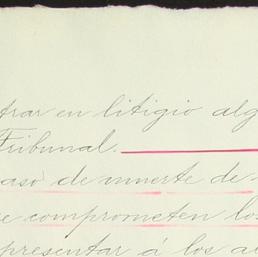 trar en litigio alg
Tribunal.
aso de muerte de
e comprometen los
presentar á los a